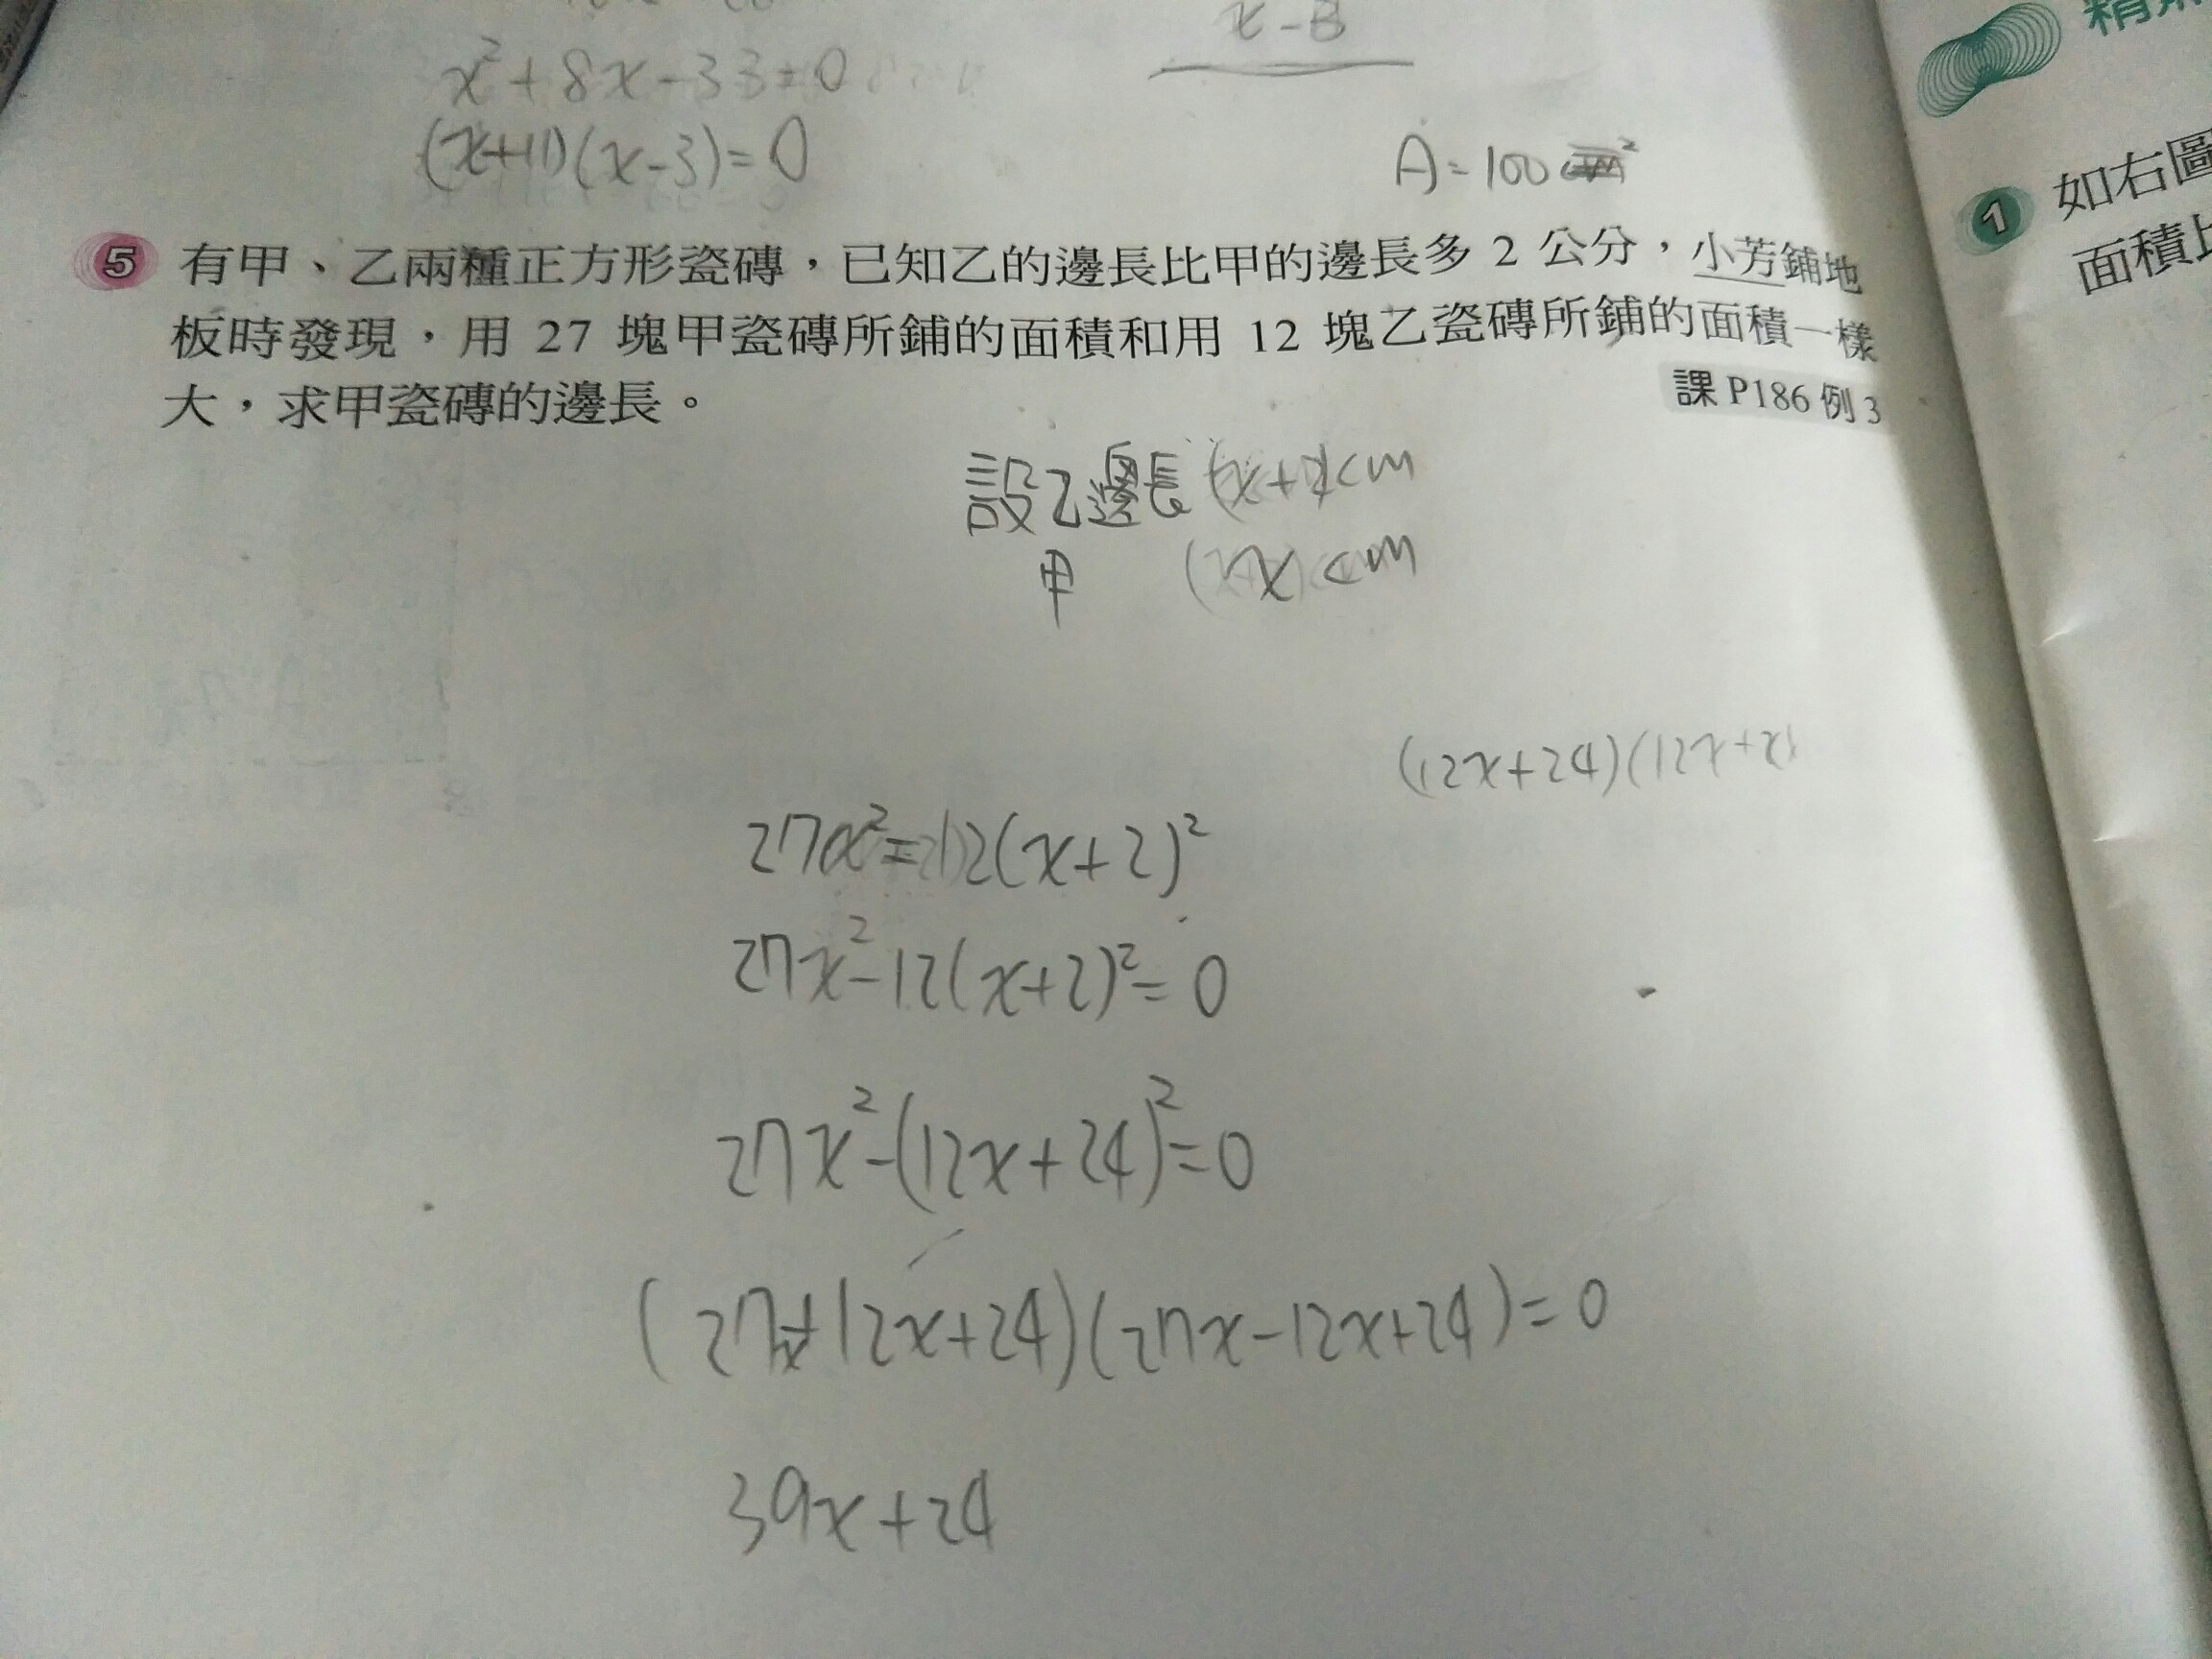 x²+8x-33=0
(x+11)(x-3)=0
x-3
A=100
5 有甲、乙兩種正方形瓷磚，已知乙的邊長比甲的邊長多 2 公分，小芳鋪地
板時發現，用 27 塊甲瓷磚所鋪的面積和用 12 塊乙瓷磚所鋪的面積一樣
大，求甲瓷磚的邊長。
課 P186 例 3
設乙邊長(x+2)cm
甲 (x)cm
(12x+24)(12x+2
27x²=12(x+2)²
27x²-12(x+2)²=0
27x²-(12x+24)²=0
(27x+12x+24)(27x-12x+24)=0
39x+24
1 如右圖
面積